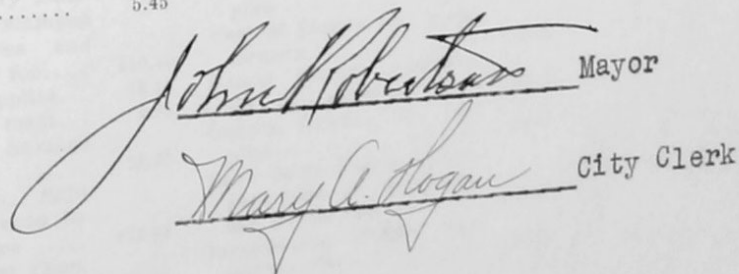 ........ 5.45
John Robertson Mayor
Mary A. Hogan City Clerk